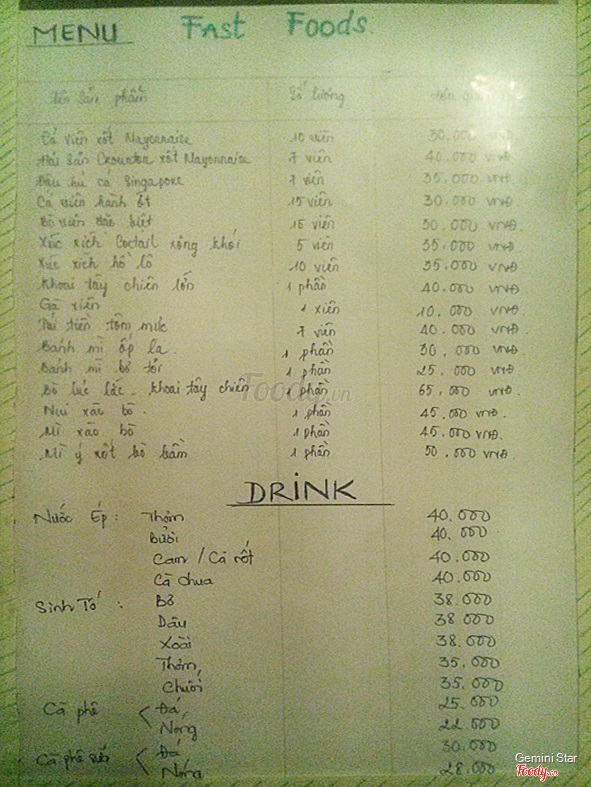 MENU Fast Foods.
Tên sản phẩm Số lượng Đơn giá
Cá viên xốt Mayonnaise 10 viên 30.000 VNĐ
Hải sản Crounton xốt Mayonnaise 7 viên 40.000 VNĐ
Đậu hủ cá Singapore 7 viên 35.000 VNĐ
Cá viên hành ớt 15 viên 30.000 VNĐ
Bò viên đặc biệt 15 viên 30.000 VNĐ
Xúc xích Coctail xông khói 5 viên 35.000 VNĐ
Xúc xích hồ lô 10 viên 35.000 VNĐ
Khoai tây chiên lớn 1 phần 40.000 VNĐ
Gà xiên 1 xiên 10.000 VNĐ
Túi tiền tôm mực 7 viên 40.000 VNĐ
Bánh mì ốp la. 1 phần 30.000 VNĐ.
Bánh mì bơ tỏi 1 phần 25.000 VNĐ
Bò lúc lắc - khoai tây chiên 1 phần 65.000 VNĐ.
Nui xào bò. 1 phần 45.000 VNĐ.
Mì xào bò 1 phần 45.000 VNĐ.
Mì ý xốt bò bằm 1 phần 50.000 VNĐ
Foody.vn
DRINK
Nước Ép : Thơm 40.000
Bưởi 40.000
Cam / Cà rốt 40.000
Cà chua 40.000
Sinh Tố : Bơ 38.000
Dâu 38.000
Xoài 38.000
Thơm 35.000
Chuối 35.000
Cà phê < Đá 25.000
Nóng 22.000
Cà phê sữa < Đá 30.000
Nóng 28.000
Gemini Star
Foody.vn